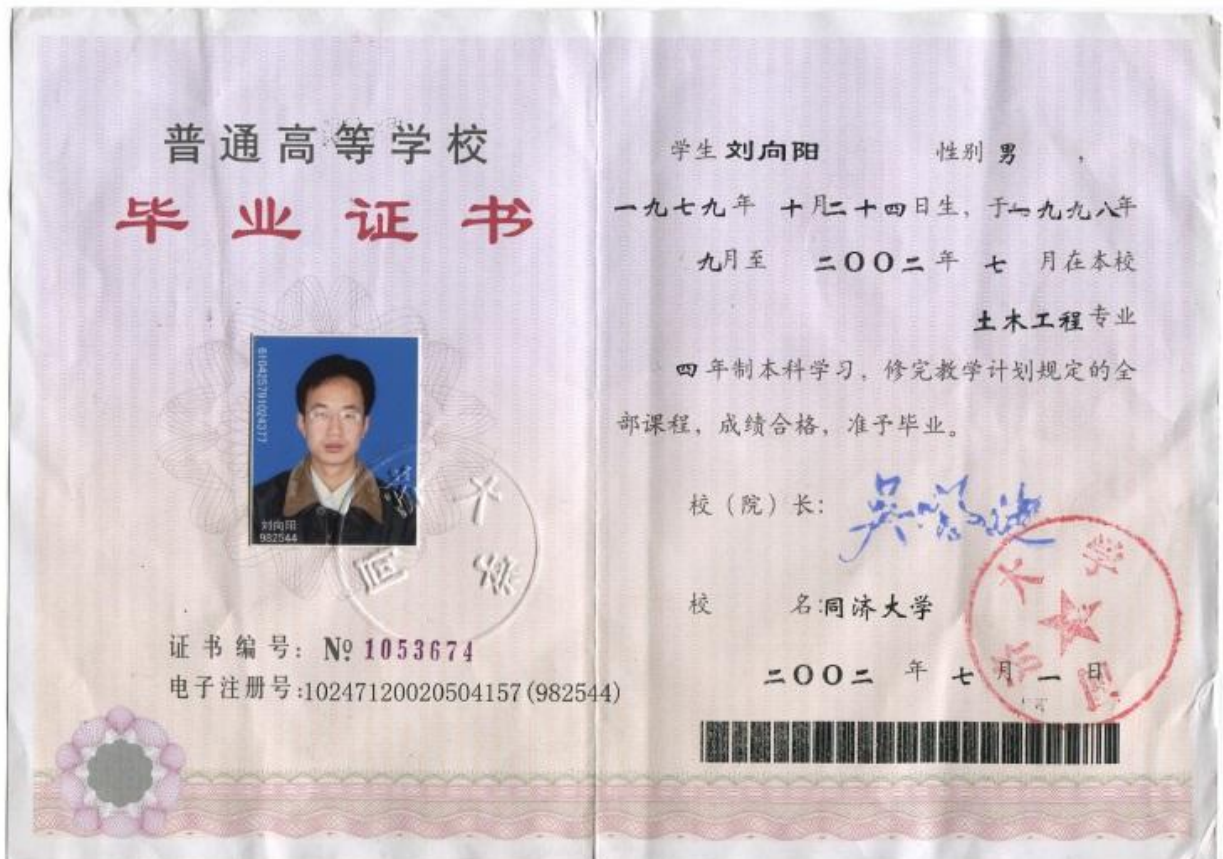 普通高等学校
毕业证书
刘向阳
982544
证书编号: № 1053674
电子注册号:10247120020504157(982544)
学生 刘向阳 性别 男 ,
一九七九年 十月二十四日生, 于一九九八年
九月至 二〇〇二年 七 月在本校
土木工程专业
四年制本科学习, 修完教学计划规定的全
部课程, 成绩合格, 准予毕业。
校（院）长:
校 名:同济大学
二〇〇二 年 七 月 一 日
同济大学